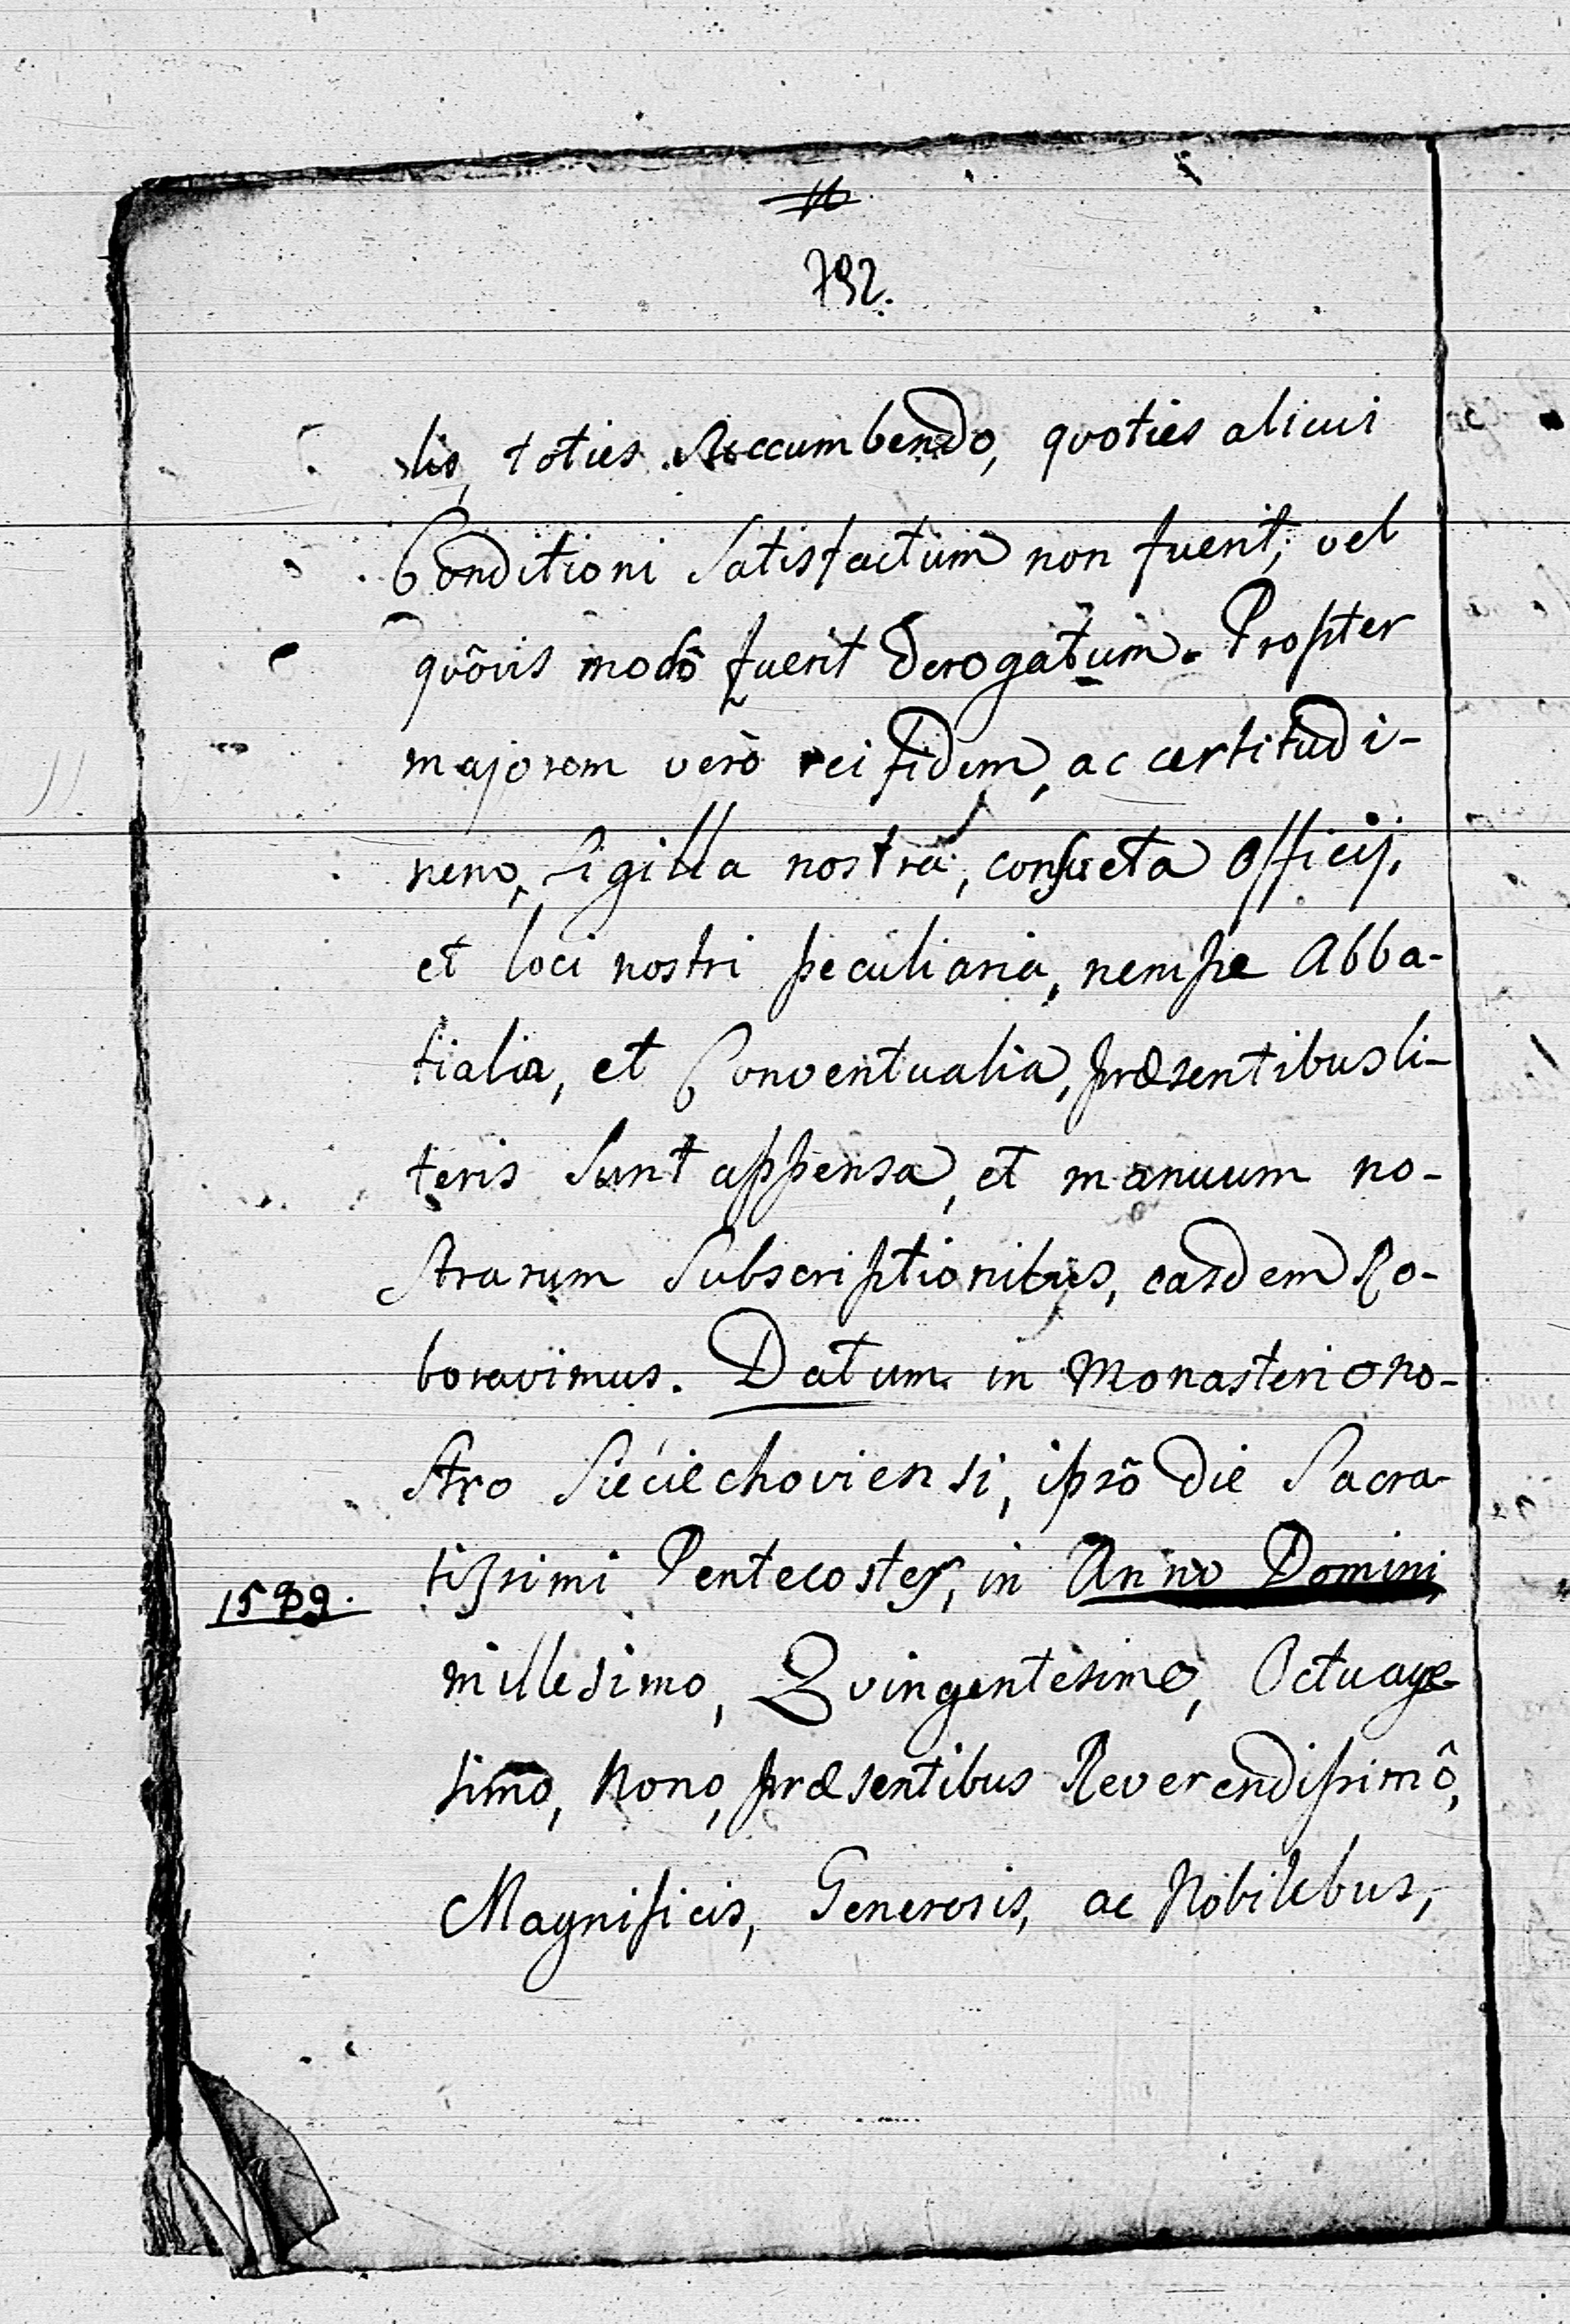 792.
lis, toties succumbendo, quoties alicui
Conditioni Satisfactum non fuerit; vel
quôvis modô fuerit Derogatum. Propter
majorem verò rei fidem, ac certitudi-
nem, Sigilla nostra, consveta Officij,
et loci nostri peculiaria, nempe Abba-
tialia, et Conventualia, præsentibus li-
teris Sunt appensa, et manuum no-
strarum Subscriptionibus, easdem Ro-
boravimus. Datum in Monasterio no-
stro Siećiechoviensi, ipsô Die Sacra-
tissimi Pentecostes, in Anno Domini,
1589.
millesimo, Qvingentesimo, Octuage-
simo, Nono, præsentibus Reverendissimô,
Magnificis, Generosis, ac Nobilibus,